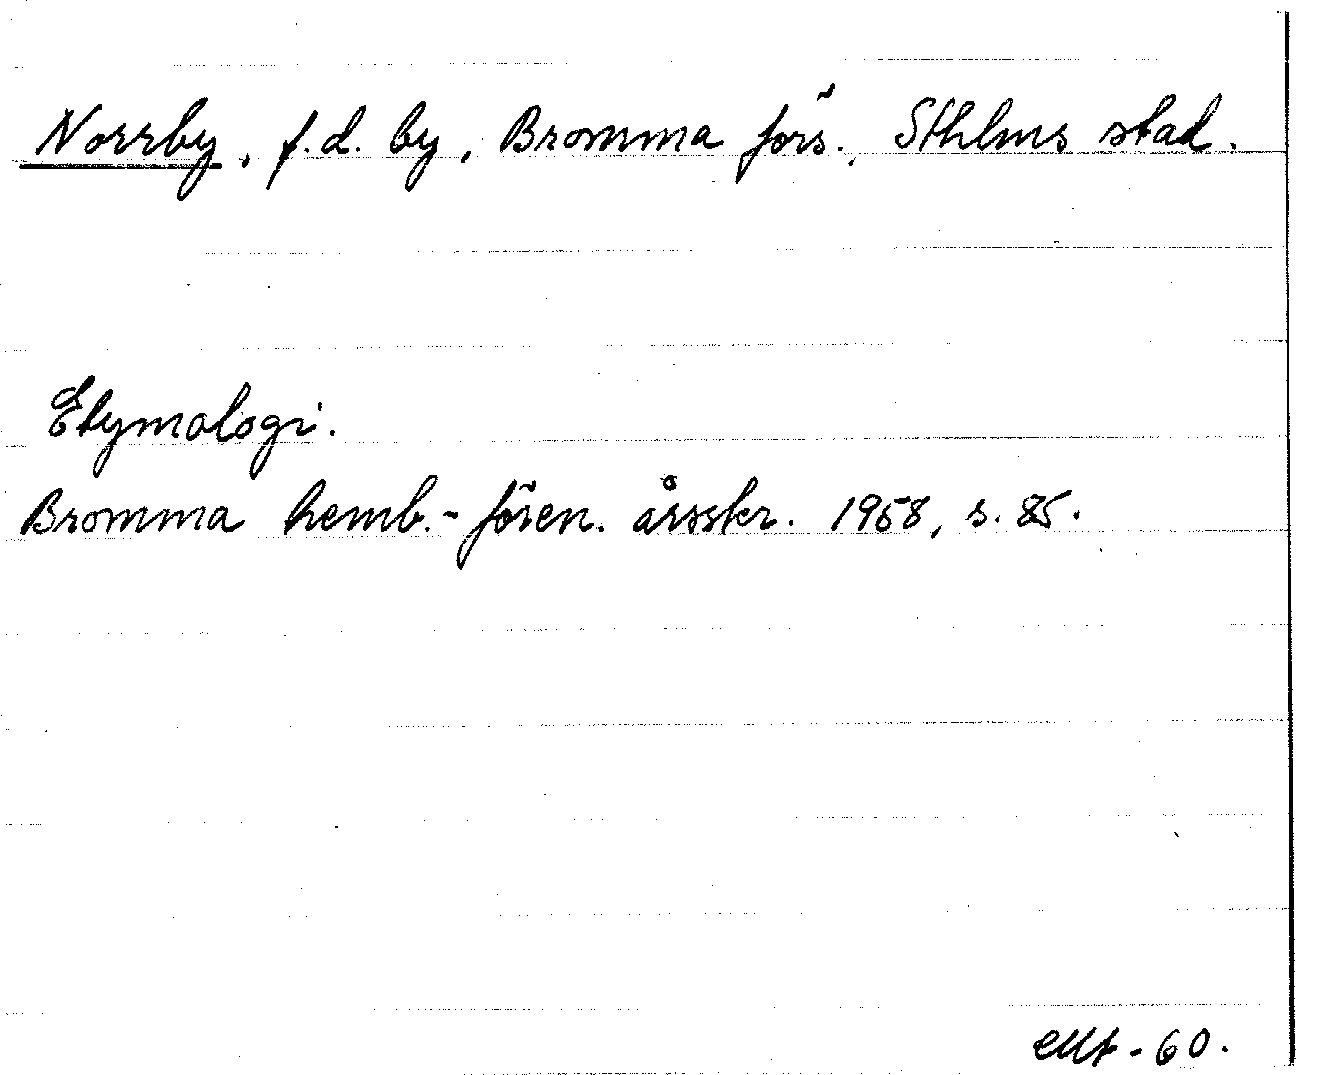 Norrby, f.d. by, Bromma förs., Sthlms stad.
Etymologi.
Bromma hemb.-fören. årsskr. 1958, s. 85.
-60.